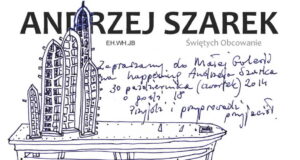 ANDRZEJ SZAREK
EH.WH.JB
Świętych Obcowanie
Zapraszamy do Małej Galerii
na happening Andrzeja Szarka
30 października (czwartek) 2014
o godz. 18
Przyjdź i przyprowadź
przyjaciół